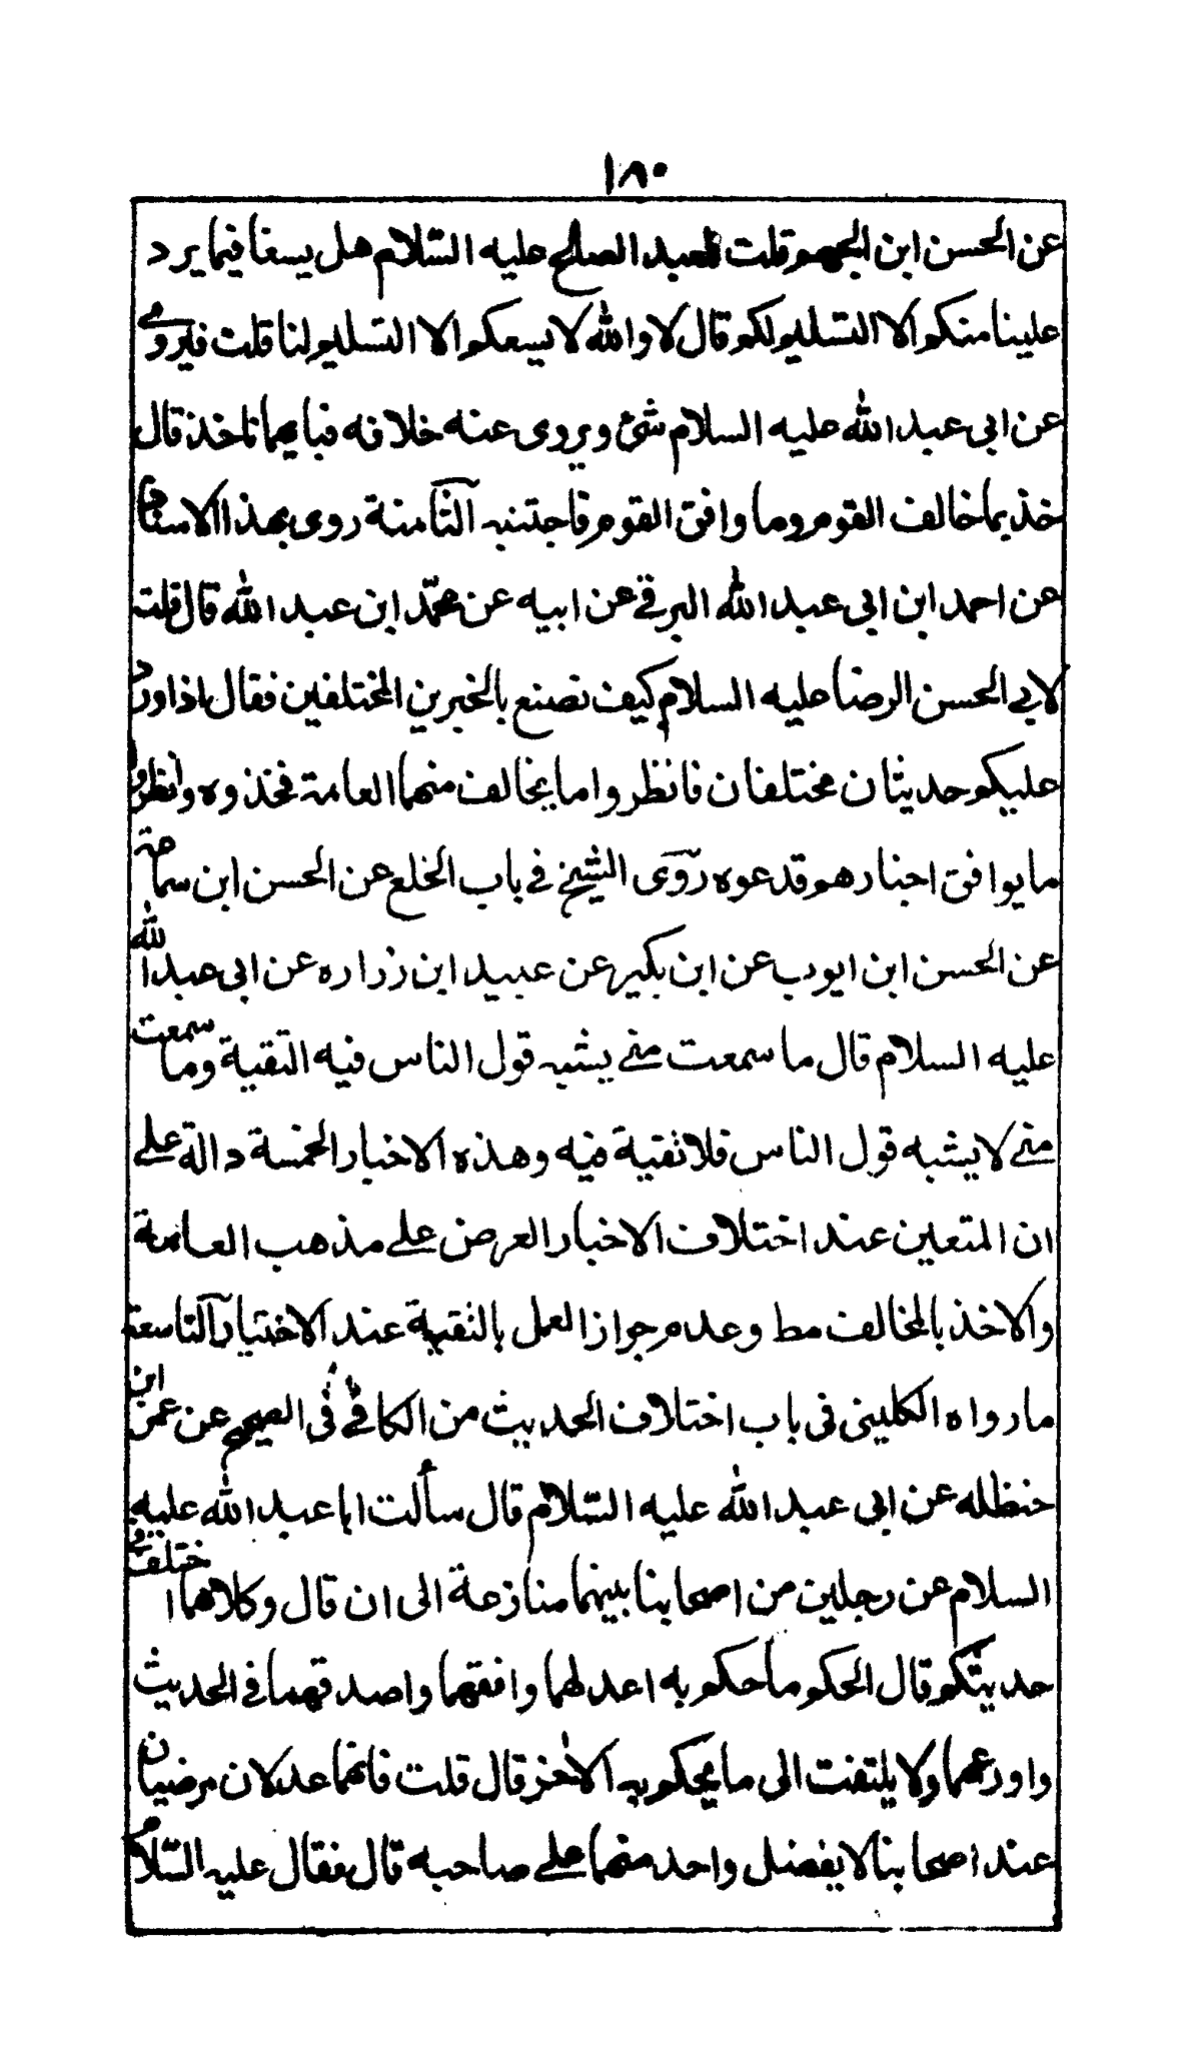 ١٨٠
عن الحسن ابن الجهم قلت للعبد الصالح عليه السّلام هل يسعنا فيما يرد
علينا منكم الا التسليم لكم قال لا والله لا يسعكم الا التسليم لنا قلت فيروى
عن ابى عبد الله عليه السلام شئ ويروى عنه خلافه فبايهما ناخذ قال
خذ بما خالف القوم وما وافق القوم فاجتنبه الثامنة روى بهذا الاسناد
عن احمد ابن ابى عبد الله البرقي عن ابيه عن محمّد ابن عبد الله قال قلت
لابي الحسن الرضا عليه السلام كيف نصنع بالخبرين المختلفين فقال اذا ورد
عليكم حديثان مختلفان فانظروا ما يخالف منهما العامة فخذوه وانظروا
ما يوافق اخبارهم فدعوه روى الشيخ في باب الخلع عن الحسن ابن سماعة
عن الحسن ابن ايوب عن ابن بكير عن عبيد ابن زراره عن ابى عبد الله
عليه السلام قال ما سمعت مني يشبه قول الناس فيه التقية وما سمعت
مني لا يشبه قول الناس فلا تقية فيه وهذه الاخبار الخمسة دالة على
ان المتعين عند اختلاف الاخبار العرض على مذهب العامة
والاخذ بالمخالف مط وعدم جواز العمل بالتقية عند الاختيار التاسعة
ما رواه الكلينى فى باب اختلاف الحديث من الكافي فى الصحيح عن عمر ابن
حنظله عن ابى عبد الله عليه السّلام قال سألت ابا عبد الله عليه
السلام عن رجلين من اصحابنا بينهما منازعة الى ان قال وكلاهما اختلف فى
حديثكم قال الحكم ما حكم به اعدلهما وافقهما واصدقهما في الحديث
واورعهما ولا يلتفت الى ما يحكم به الاخر قال قلت فانهما عدلان مرضيان
عند اصحابنا لا يفضل واحد منهما على صاحبه قال فقال عليه السّلام